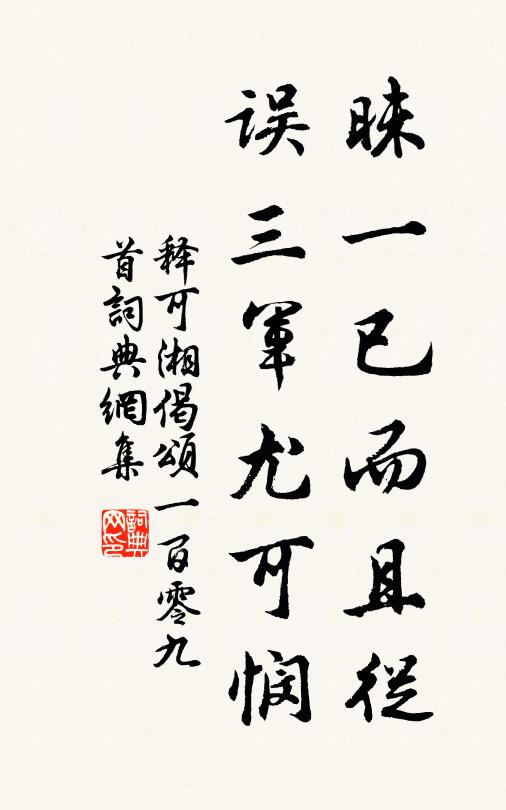 昧一已而且從
误三軍尤可悯
释可湘偈頌一百零九
首詞典網集
詞典网印